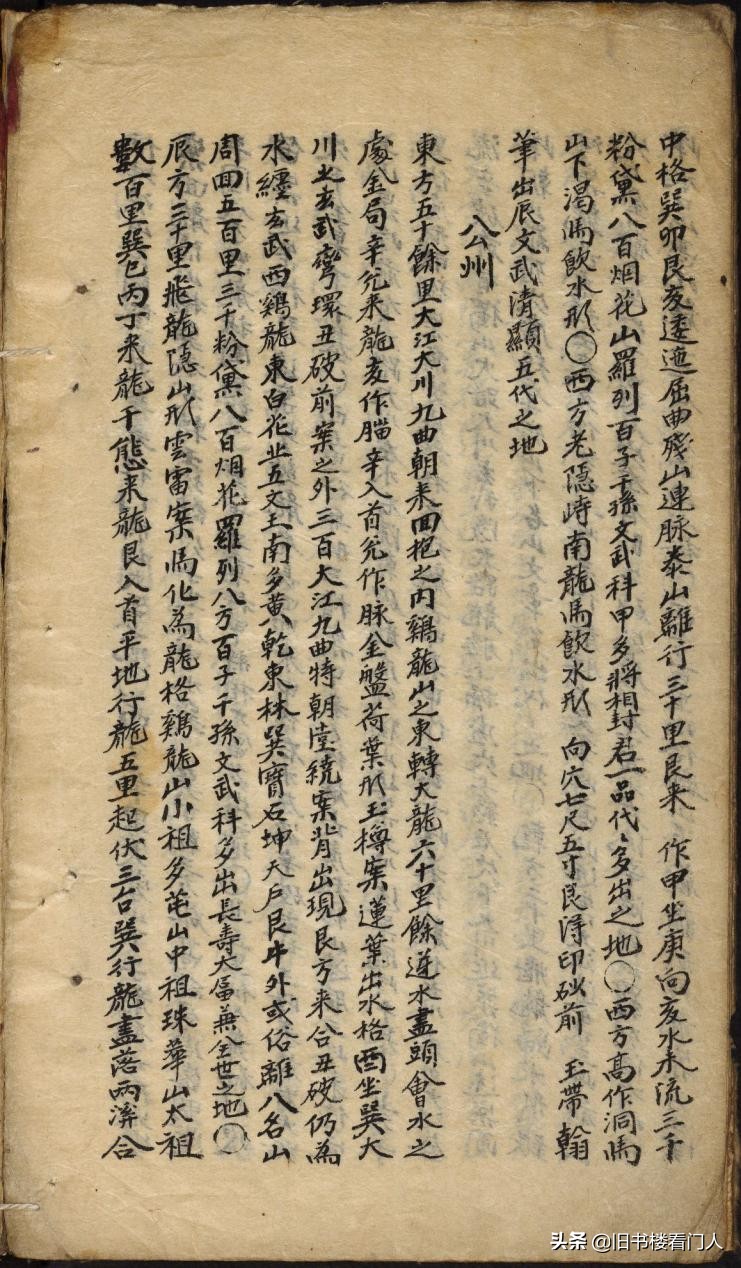 中格巽卯艮亥逶迤屈曲殘山連脉泰山離行三十里艮来 作甲坐庚向亥水未流三千
粉黛八百烟花山羅列百子千孫文武科甲多將相封君一品代〻多出之地○西方高作洞馬
山下渴馬飲水形○西方老隱峙南龍馬飲水形 向穴七尺五寸艮得印砂前 玉帶翰
筆出辰文武清顯五代之地
公州
東方五十餘里大江大川九曲朝来回抱之内鷄龍山之東轉大龍六十里餘逆水盡頭會水之
處金局辛兊来龍亥作腦辛入首兊作脉金盤荷葉形玉樽案蓮葉出水格酉坐巽大
川北玄武彎環丑破前案之外三百大江九曲特朝陸繞案背出現艮方来合丑破仍為
水纏玄武西鷄龍東白花北五文王南多黄乾東林巽寶石坤天戶艮牛外或俗離八名山
周回五百里三千粉黛八百烟花羅列八方百子千孫文武科多出長壽大富兼全世之地○
辰方三十里飛龍隱山形雲雷案馬化為龍格鷄龍山小祖多芚山中祖珠華山太祖
數百里巽巳丙丁来龍千態来龍艮入首平地行龍五里起伏三台巽行龍盡落两溝合
头条 @旧书楼看门人